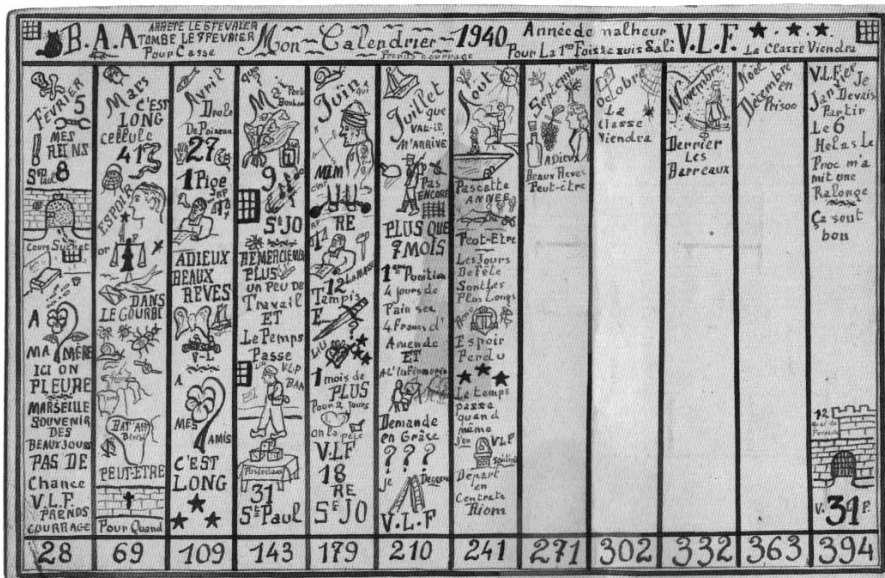 B.A.A
ARRETE LE 5 FEVRIER
TOMBE LE 9 FEVRIER
Pour Casse
Mon-Calendrier-1940
Prends courrage
Année de malheur
Pour La 1re Fois se suis Sali
V.L.F.
La Classe Viendra
FEVRIER 5
MES
REINS
St Paul 8
Cours Suchet
A
MA MÈRE
ICI ON
PLEURE
MARSEILLE
SOUVENIR
DES
BEAUX JOURS
PAS DE
Chance
V.L.F
PRENDS
COURRAGE
28
Mars
C'EST
LONG
Cellule
41
ESPOIR
or
DANS
LE GOURBI
BAT' AFF
PEUT-ETRE
Pour Quand
69
Avril
Drole
De Poisson
27
1 Pige
ADIEUX
BEAUX
REVES
A
MES
AMIS
C'EST
LONG
109
Mai
Porte
Bonheur
9
St JO
REMERCIEMENT
PLUS
un Peu de
Travail
ET
Le Temps
Passe
31
St Paul
143
Juin
MLM
RE
12
Tampis
1 mois de
PLUS
Pour 2 jours
V.L.F
18
RE
St JO
179
Juillet
que
VAL-IL
M'ARRIVE
Pas
ENCORE
PLUS QUE
7 MOIS
1ere Punition
4 jours de
Pain sec
4 Francs d'
Amende
ET
A L'infirmerie
Demande
en Grâce
? ? ?
je Descend
V.L.F
210
Aout
Pas cette
ANNEE
Peut-Etre
Les Jours
De Fête
Sont Les
Plus Longs
Espoir
Perdu
Le temps
passe
quand
même
V.L.F
Départ
en
Centrale
Riom
241
Septembre
ADIEU
Beaux Reves
Peut-être
271
Octobre
La
Classe
Viendra
302
Novembre
Derrier
Les
Barreaux
332
Noël
Décembre
en
Prison
363
V.L.F.
Janvier Je
Devais
Partir
Le 6
Helas Le
Proc m'a
mit une
Ralonge
Ça sent
bon
12
V. 31 P.
394